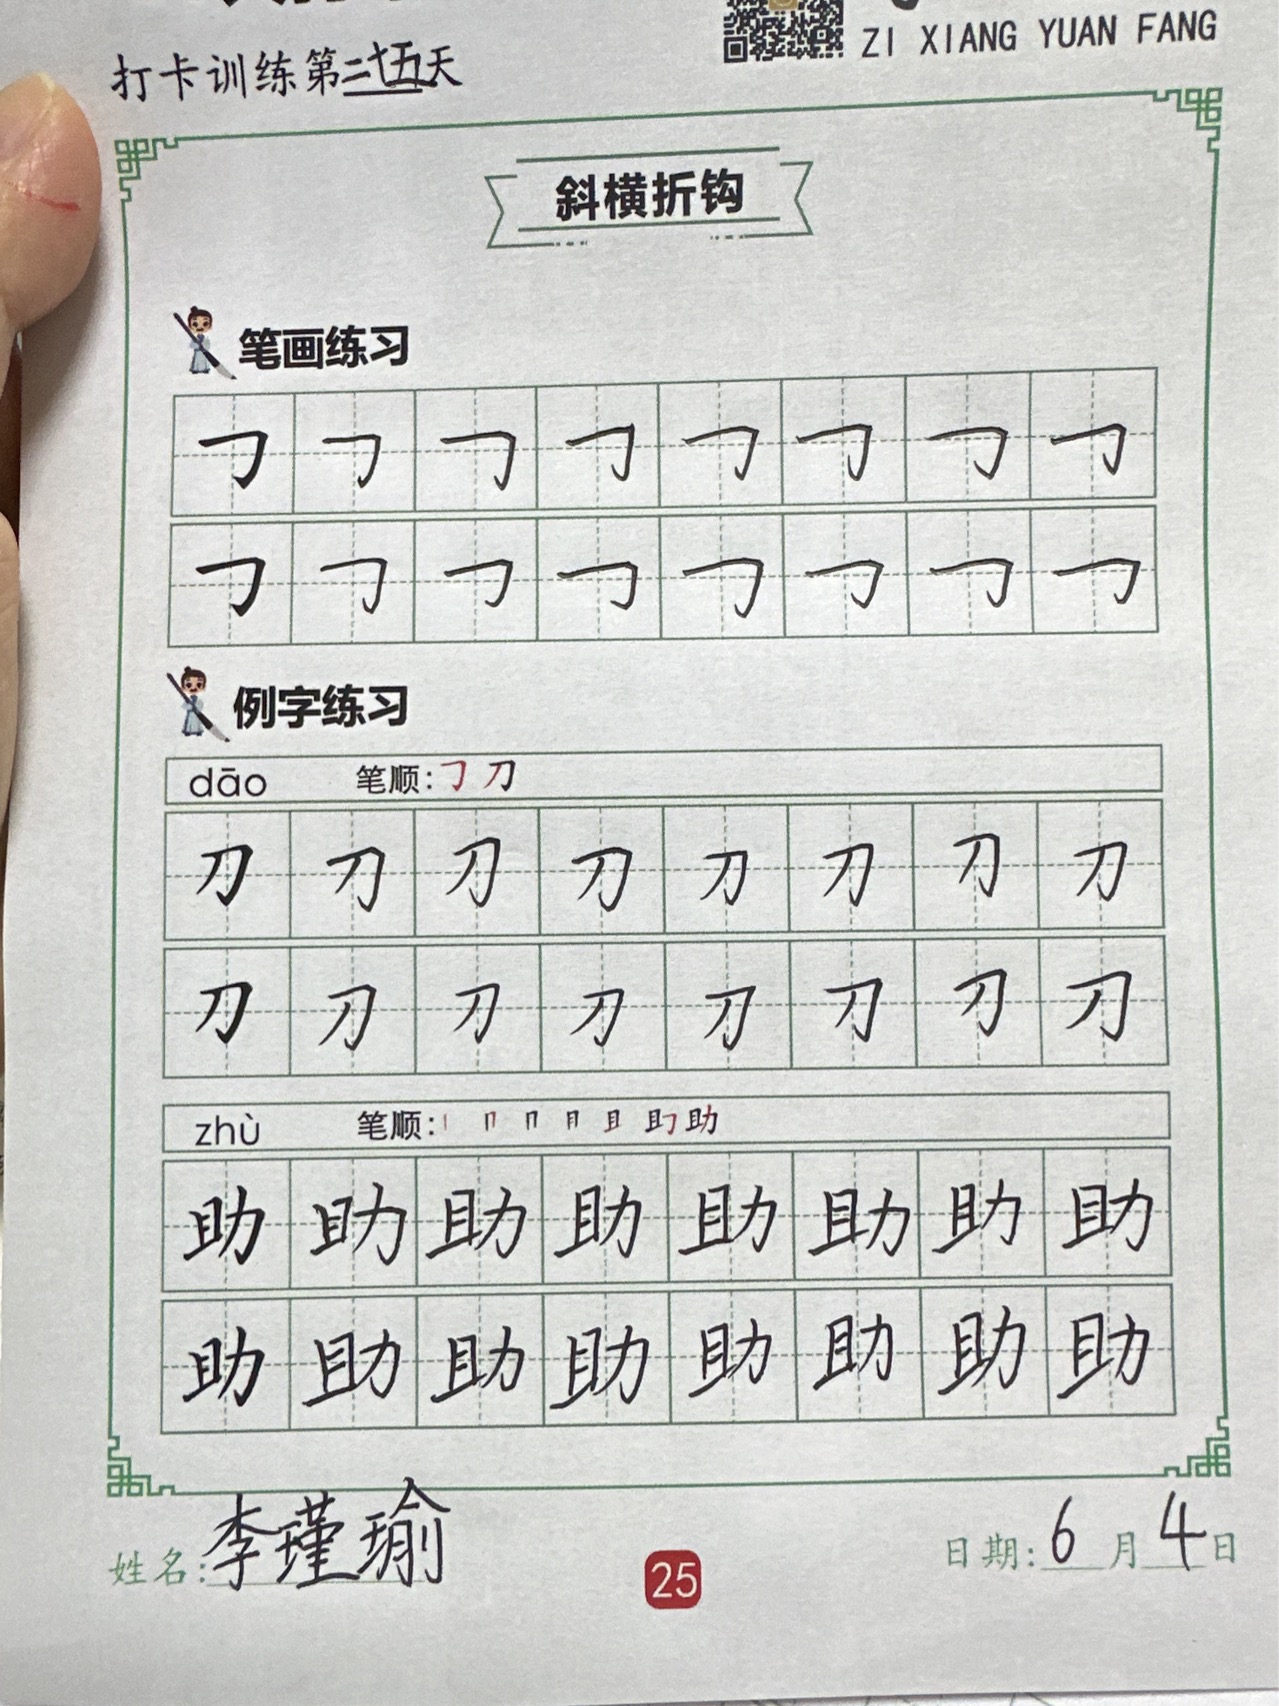 ZI XIANG YUAN FANG
打卡训练第二十五天
斜横折钩
笔画练习
㇆ ㇆ ㇆ ㇆ ㇆ ㇆ ㇆ ㇆
㇆ ㇆ ㇆ ㇆ ㇆ ㇆ ㇆ ㇆
例字练习
dāo 笔顺: ㇆ 刀
刀 刀 刀 刀 刀 刀 刀 刀
刀 刀 刀 刀 刀 刀 刀 刀
zhù 笔顺: 丨 冂 冂 月 且 助
助 助 助 助 助 助 助 助
助 助 助 助 助 助 助 助
姓名: 李瑾瑜 25 日期: 6 月 4 日